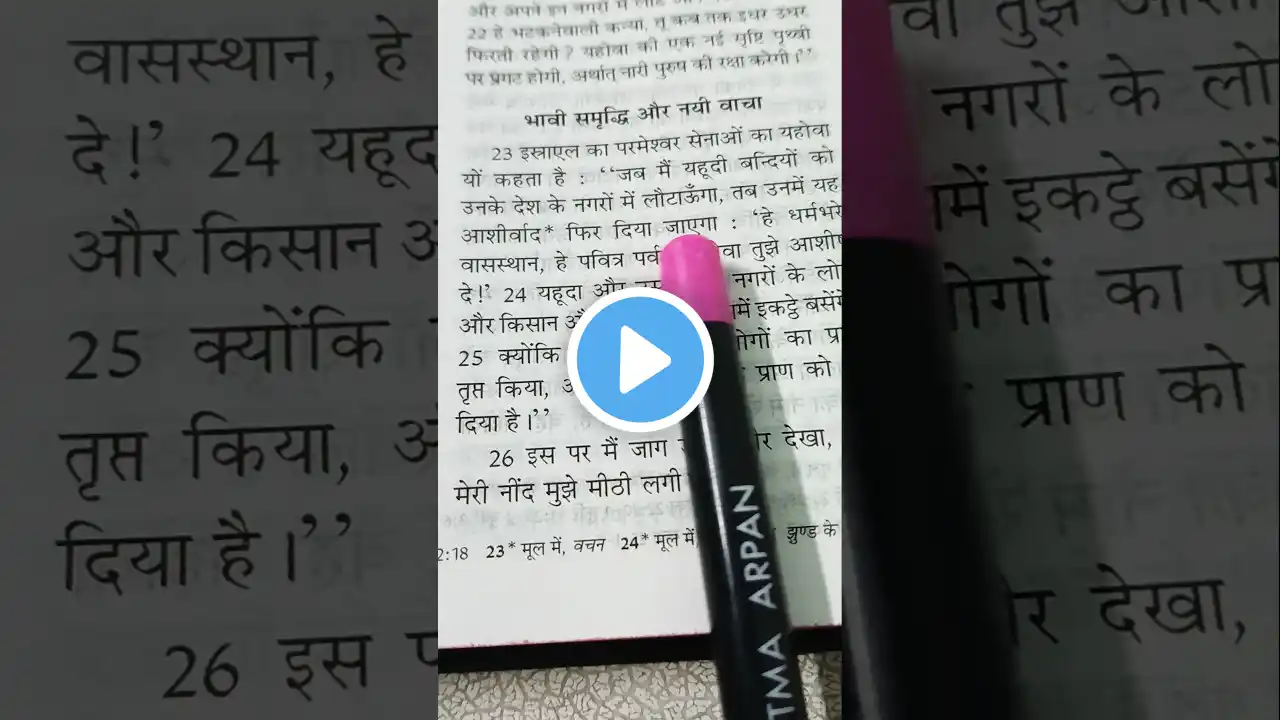 और अपने इन नगरों में लौट
22 हे भटकनेवाली कन्या, तू कब तक इधर उधर
फिरती रहेगी ? यहोवा की एक नई सृष्टि पृथ्वी
पर प्रगट होगी, अर्थात् नारी पुरुष की रक्षा करेगी ।’’
भावी समृद्धि और नयी वाचा
23 इस्राएल का परमेश्वर सेनाओं का यहोवा
यों कहता है : ‘‘जब मैं यहूदी बन्दियों को
उनके देश के नगरों में लौटाऊँगा, तब उनमें यह
आशीर्वाद* फिर दिया जाएगा : ‘हे धर्मभरे
वासस्थान, हे पवित्र पर्व वा तुझे आशीष
दे!’ 24 यहूदा और नगरों के लो
और किसान में इकट्ठे बसेंगे
25 क्योंकि ोगों का प्रा
तृप्त किया, प्राण को
दिया है ।’’
26 इस पर मैं जाग देखा,
मेरी नींद मुझे मीठी लगी
2:18 23* मूल में, वचन 24* मूल में झुण्ड के
TMA ARPAN
वासस्थान, हे
दे!’ 24 यहूद
और किसान
25 क्योंकि
तृप्त किया,
दिया है ।’’
26 इस
वा तुझे
नगरों के लो
में इकट्ठे बसेंगे
ोगों का प्रा
प्राण को
र देखा,